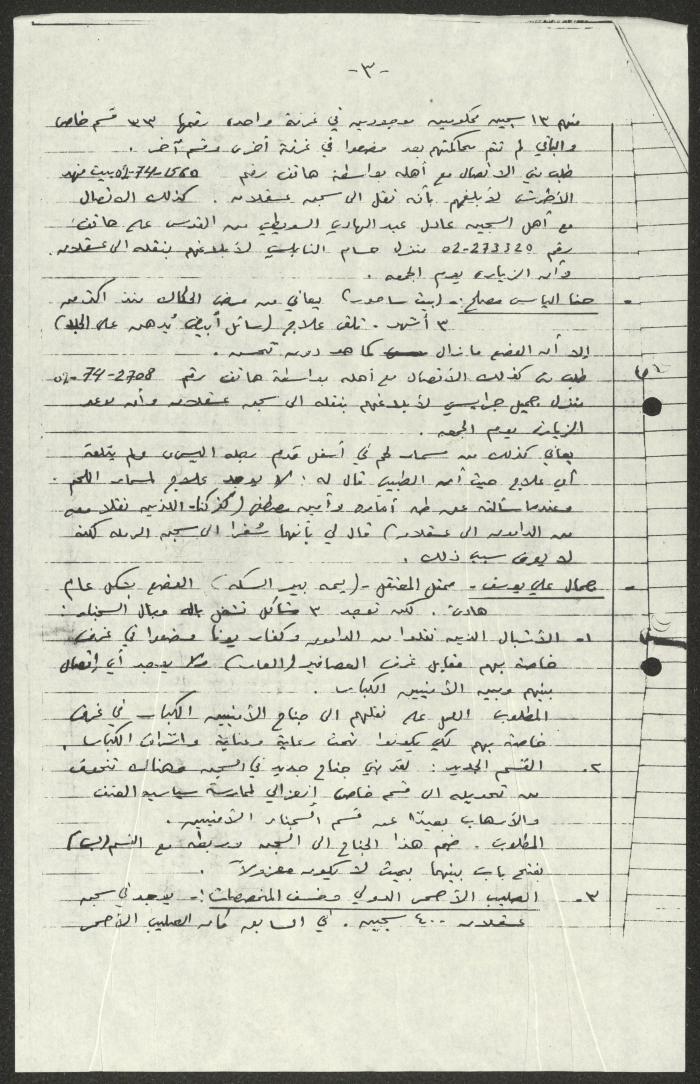 -٣-
منهم ١٣ سجين محكومين موجودين في غرفة واحدة رقمها ٣٣ قسم خاص
والباقي لم تتم محاكمتهم بعد وضعوا في غرفة أخرى وقسم آخر .
طلب مني الاتصال مع أهله بواسطة هاتف رقم 02-74-1560 بيت فهد
الأطرش لأبلغهم بأنه نقل الى سجن عسقلان . كذلك الاتصال
مع أهل السجين عادل عبد الهادي السويطي من القدس على هاتف
رقم 02-273320 منزل حسام النابلسي لأبلاغهم بنقله الى عسقلان
وأن الزيارة يوم الجمعه .
- حنا الياس مصلح :- (بيت ساحور) يعاني من مرض الحكاك منذ اكثر من
٣ أشهر . تلقى علاج (سائل أبيض يُدهن على الجلد)
إلا أن الوضع مازال كما هو دون تحسن .
طلب مني كذلك الأتصال مع أهله بواسطة هاتف رقم 02-74-2708
منزل جميل جرايسي لأبلاغهم بنقله الى سجن عسقلان وأن موعد
الزيارة يوم الجمعه .
يعاني كذلك من مسمار لحم في أسفل قدم رجله اليسرى ولم يتلقى
أي علاج حيث أن الطبيب قال له : لا يوجد علاج لمسمار اللحم .
وعندما سألته عن طه أبو وأمين مصطفى (كفركنا- اللذين نقلا معه
من الدامون الى عسقلان) قال لي بأنهما سُفرا الى سجن الرمله لكنه
لا يعرف سبب ذلك .
- جمال علي يوسف - ممثل المعتقل - (يسمه بير السكه) الوضع بشكل عام
هادئ . لكن توجد ٣ مشاكل تشغل باله وبال السجناء :
١- الأشبال الذين نقلوا من الدامون وكفار يونا وضعوا في غرف
خاصة بهم مقابل غرف العصافير (العار) ولا يوجد أي إتصال
بينهم وبين الأمنيين الكبار .
المطلوب العمل على نقلهم الى جناح الأمنيين الكبار في غرف
خاصة بهم لكي يكونوا تحت رعاية وعناية واشراف الكبار .
٢- القسم الجديد : لقد بني جناح جديد في السجن وهناك تخوف
من تحويله الى قسم خاص إنعزالي لممارسة سياسة العنف
والأرهاب بعيدًا عن قسم السجناء الأمنيين .
المطلوب . ضم هذا الجناح الى السجن وربطه مع القسم (ب)
بفتح باب بينهما بحيث لا يكون معزولاً .
٣- الصليب الأحمر الدولي وخفض المخصصات :- يوجد في سجن
عسقلان ٤٠٠ سجين . في السابق كان الصليب الأحمر